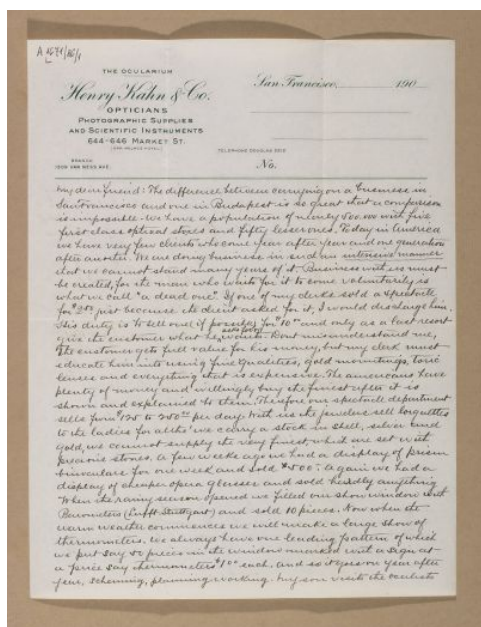 A 1671/86/1
THE OCULARIUM
Henry Kahn & Co.
OPTICIANS
PHOTOGRAPHIC SUPPLIES
AND SCIENTIFIC INSTRUMENTS
644-646 MARKET ST.
(OPP. PALACE HOTEL)
BRANCH
VAN NESS AVE.
San Francisco, 190
TELEPHONE DOUGLAS
No.
My dear friend: The difference between carrying on a business in
San Francisco and one in Budapest is so great that a comparison
is impossible. We have a population of nearly 500.000 with five
first class optical stores and fifty lesser ones. Today in America
we have very few clients who come year after year and one generation
after another. We are doing business in such an intensive manner
that we cannot stand many years of it. Business with us must
be created, for the man who waits for it to come voluntarily is
what we call "a dead one". If one of my clerks sold a spectacle
for $2.50 just because the client asked for it, I would discharge him.
His duty is to sell one if possible for $10.00 and only as a last resort
give the customer what he wants. Dont misunderstand me,
the customer gets full value for his money, but my clerk must
educate him into using fine qualities, gold mountings, toric
lenses and everything that is expensive. The americans have
plenty of money and willingly buy the finest after it is
shown and explained to them. Therefore our spectacle department
sells from $125 to 200.00 per day. With us the jewelers sell lorgnettes
to the ladies for altho' we carry a stock in shell, silver and
gold, we cannot supply the very finest, which are set with
precious stones. A few weeks ago we had a display of prism
binoculars for one week and sold again we had a
display of cheaper opera glasses and sold hardly anything
When the rainy season opened we filled our show window with
Barometers (Lufft Stuttgart) and sold 10 pieces. Now when the
warm weather commences we will make a large show of
thermometers. We always have one leading pattern of which
we put say 50 pieces in the window marked with a sign at
a price say thermometers $1.00 each, and so it goes on year after
year, scheming, planning working. My son visits the oculists